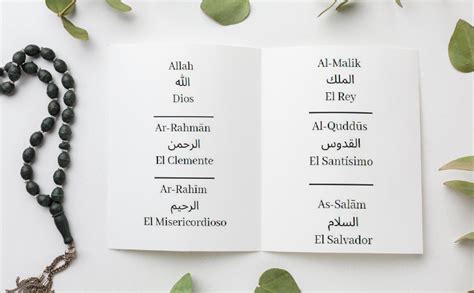 Allah
الله
Dios
Ar-Rahmān
الرحمن
El Clemente
Ar-Rahim
الرحيم
El Misericordioso
Al-Malik
الملك
El Rey
Al-Quddūs
القدوس
El Santísimo
As-Salām
السلام
El Salvador